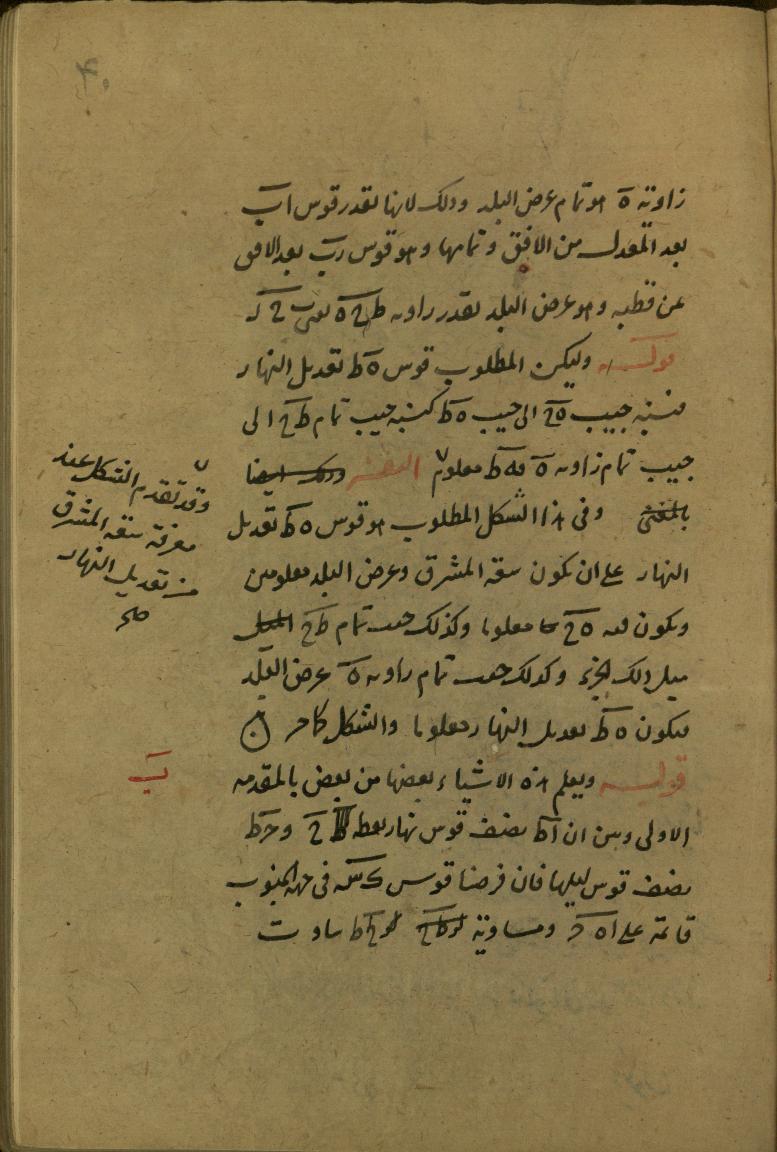 زاوية ه هو تمام عرض البلد وذلك لانها بقدر قوس اب
بعد المعدل من الافق وتمامها وهو قوس رب بعد الافق
عن قطبه وهو عرض البلد بقدر زاويه ط ح ه
قوله وليكن المطلوب قوس ه ط تعديل النهار
فنسبة جيب ه ح الى جيب ه ط كنسبة جيب تمام ط ح الى
جيب تمام زاويه ه فه ط معلوم التفسير وذلك ايضا
بالمغنى وفى هذا الشكل المطلوب هو قوس ه ط تعديل
النهار على ان تكون سعة المشرق وعرض البلد معلومين
ويكون ه ح معلوما وكذلك جيب تمام ط ح الميل
ميل ذلك الجزء وكذلك جيب تمام زاويه ه عرض البلد
فيكون ه ط تعديل النهار معلوما والشكل كما مر
قوله ويعلم هذه الاشياء بعضها من بعض بالمقدمه
الاولى وبين ان ا ط نصف قوس نهار نقطه ح و ح ط
نصف قوس ليلها فان فرضنا قوس ك س فى جهة الجنوب
قائمة على ا ه ح ومساوية ط ح ساوت
وقد تقدم الشكل عند
معرفة سعة المشرق
من تعديل النهار
صح